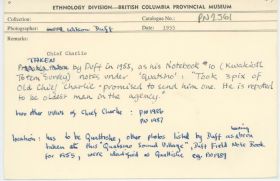 ETHNOLOGY DIVISION—BRITISH COLUMBIA PROVINCIAL MUSEUM
Collection Catalogue No. PN2361
Photographer: Wilson Duff Date: 1955
Remarks:
Chief Charlie
TAKEN
by Duff in 1955, as his Notebook #10 (Kwakiutl
Totem Survey) notes under "Quatsino": "Took 3 pix of
Old Chief Charlie - promised to send him one. He is reputed
to be oldest man on the agency."
two other views of Chief Charlie: PN1986
PN 1987
location: has to be Quattiche, other photos listed by Duff as having
been taken at this "Quatsino Sound Village", Duff Field Note Book
for 1955, were identified as Quattiche eg. PN1989